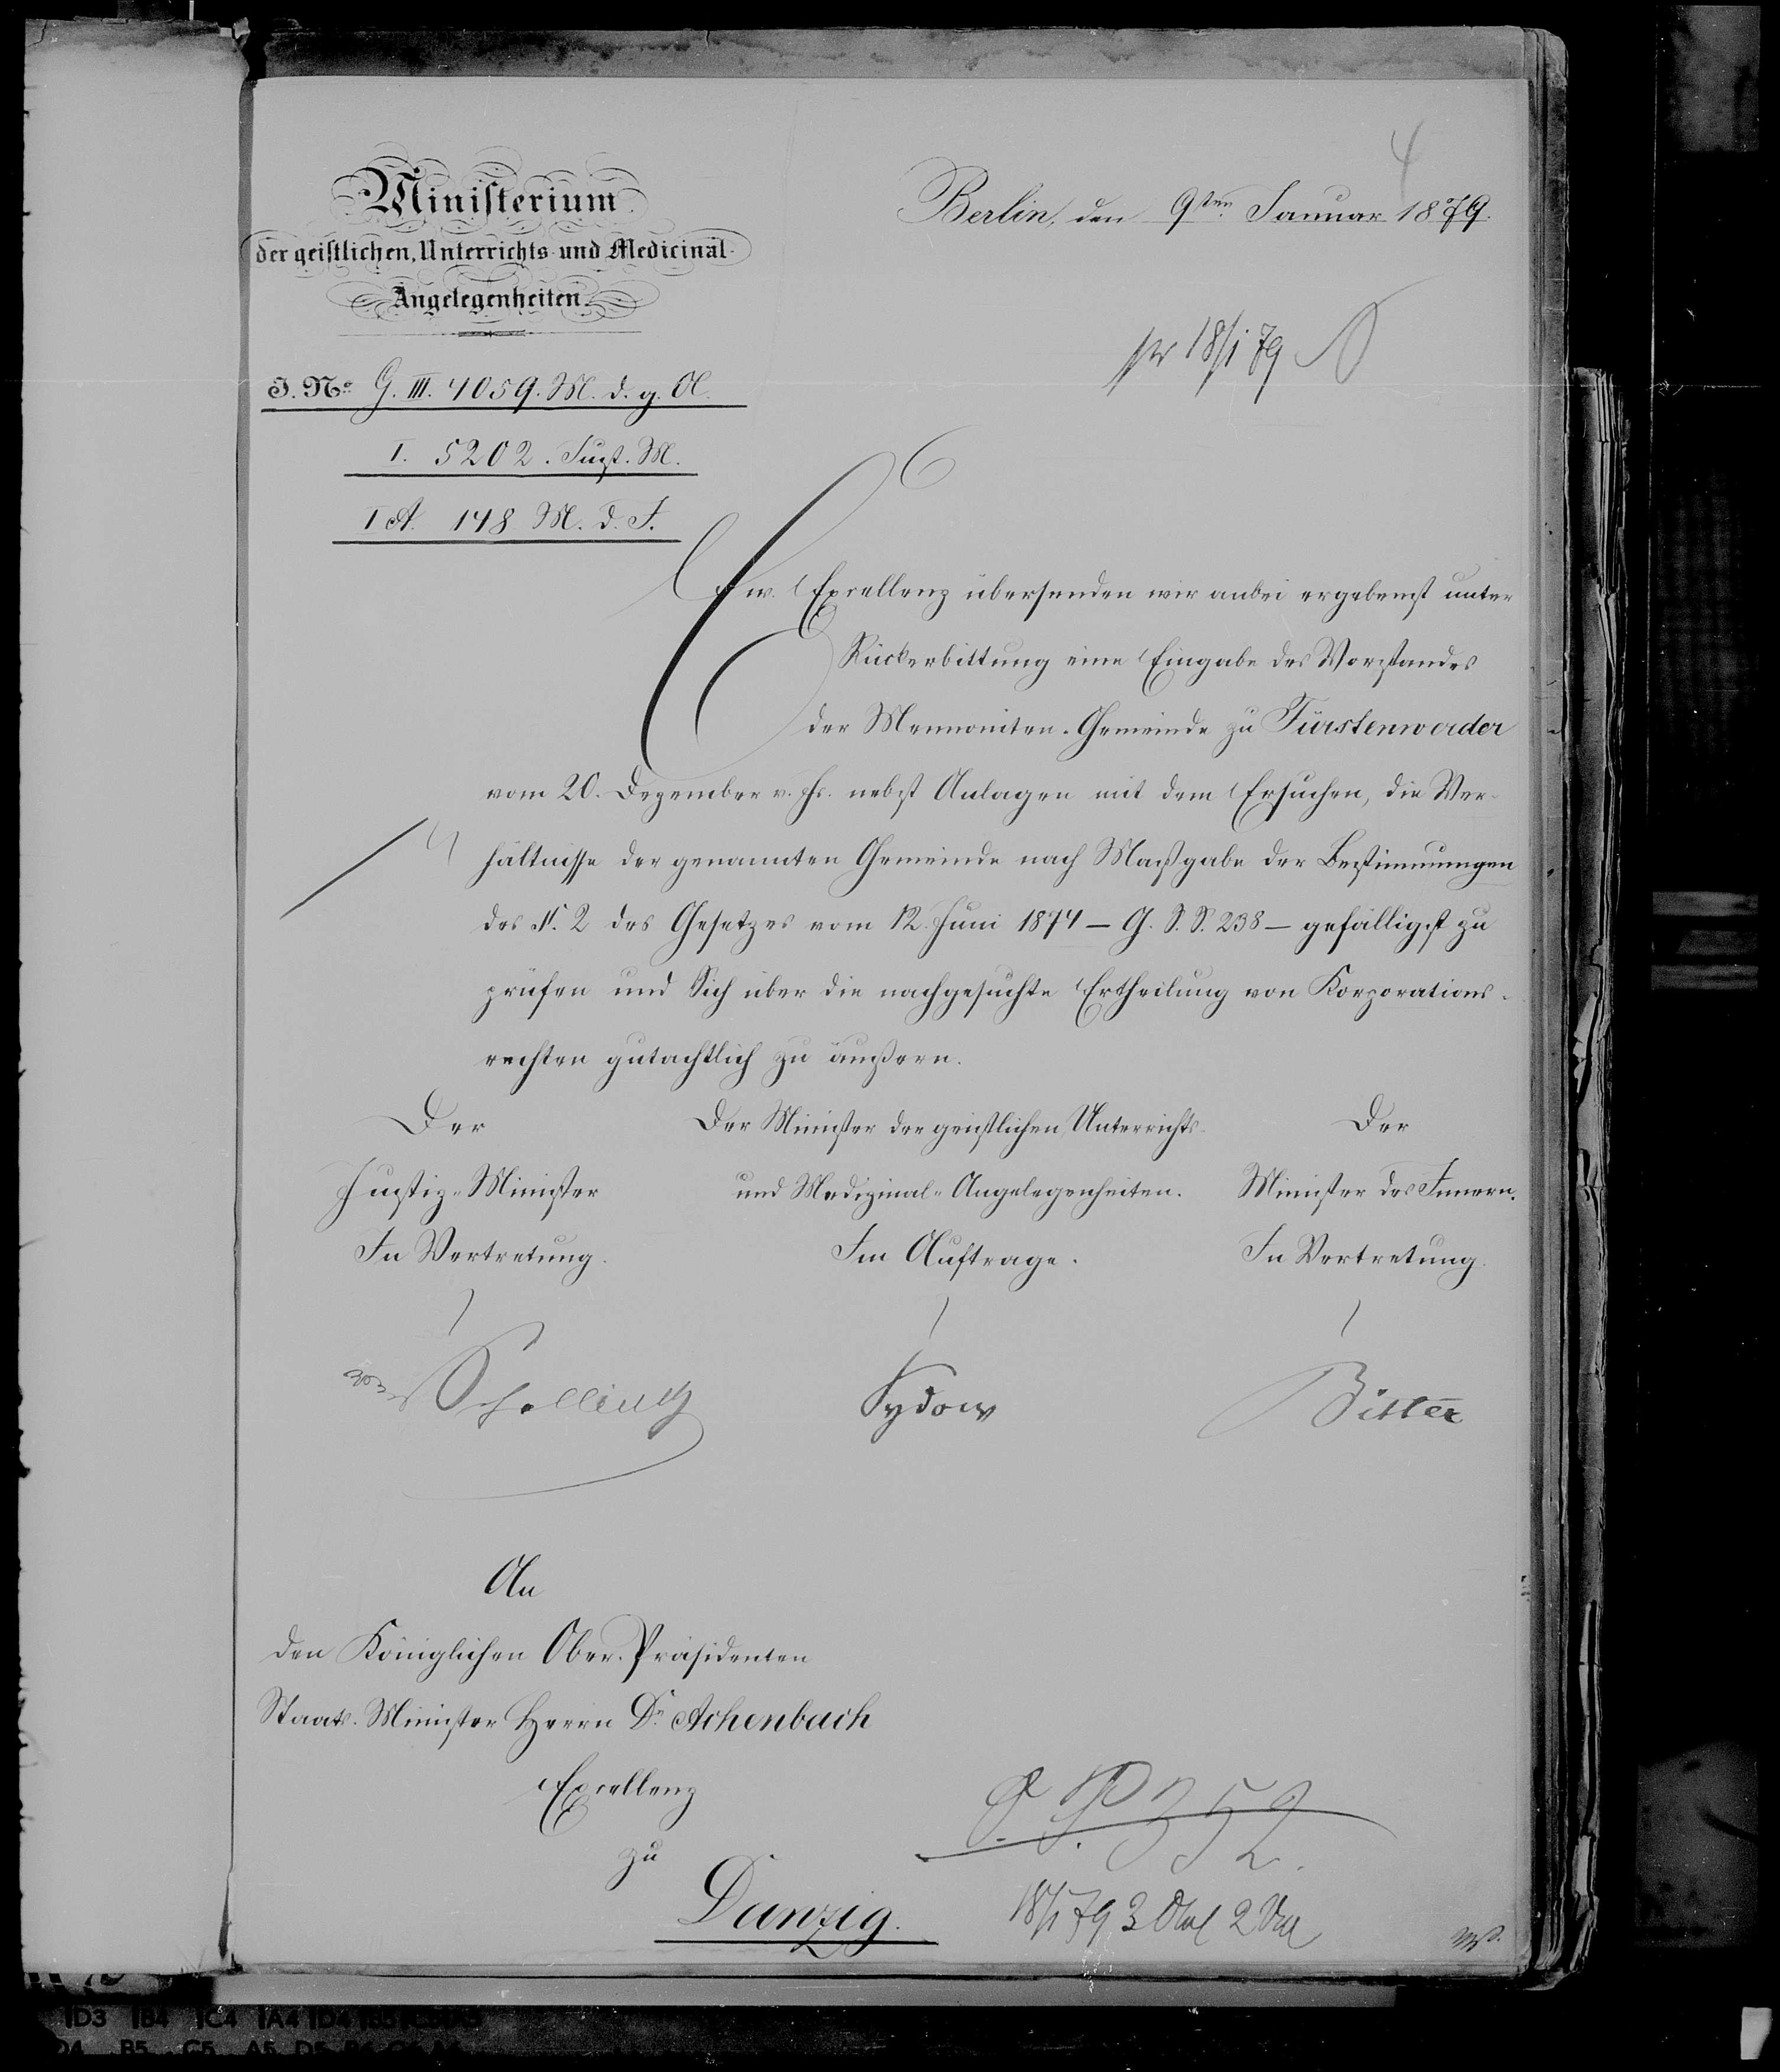 4
Ministerium
der geistlichen, Unterrichts- und Medicinal-
Angelegenheiten.
Berlin, den 9ten Januar 1879.
pr 18/1 79
J. No. G. III. 4059. M. d. g. A.
I. 5202. Just. M.
I A. 148 M. d. J.
Ew. Excellenz übersenden wir anbei ergebenst unter
Rückerbittung eine Eingabe des Vorstandes
der Mennoniten-Gemeinde zu Fürstenwerder
vom 20. Dezember v. Js. nebst Anlagen mit dem Ersuchen, die Ver-
hältnisse der genannten Gemeinde nach Maßgabe der Bestimmungen
des §. 2 des Gesetzes vom 12. Juni 1874 – G. S. S. 238 – gefälligst zu
prüfen und Sich über die nachgesuchte Ertheilung von Korporations-
rechten gutachtlich zu äußern.
Der Der Minister der geistlichen Unterrichts- Der
Justiz-Minister und Medizinal-Angelegenheiten. Minister des Innern.
In Vertretung. Im Auftrage. In Vertretung.
von Schelling Sydow Bitter
An
den Königlichen Ober-Präsidenten
Staats-Minister Herrn Dr. Achenbach
Excellenz
zu
Danzig.
O. P. 352.
18/1 79 3 2